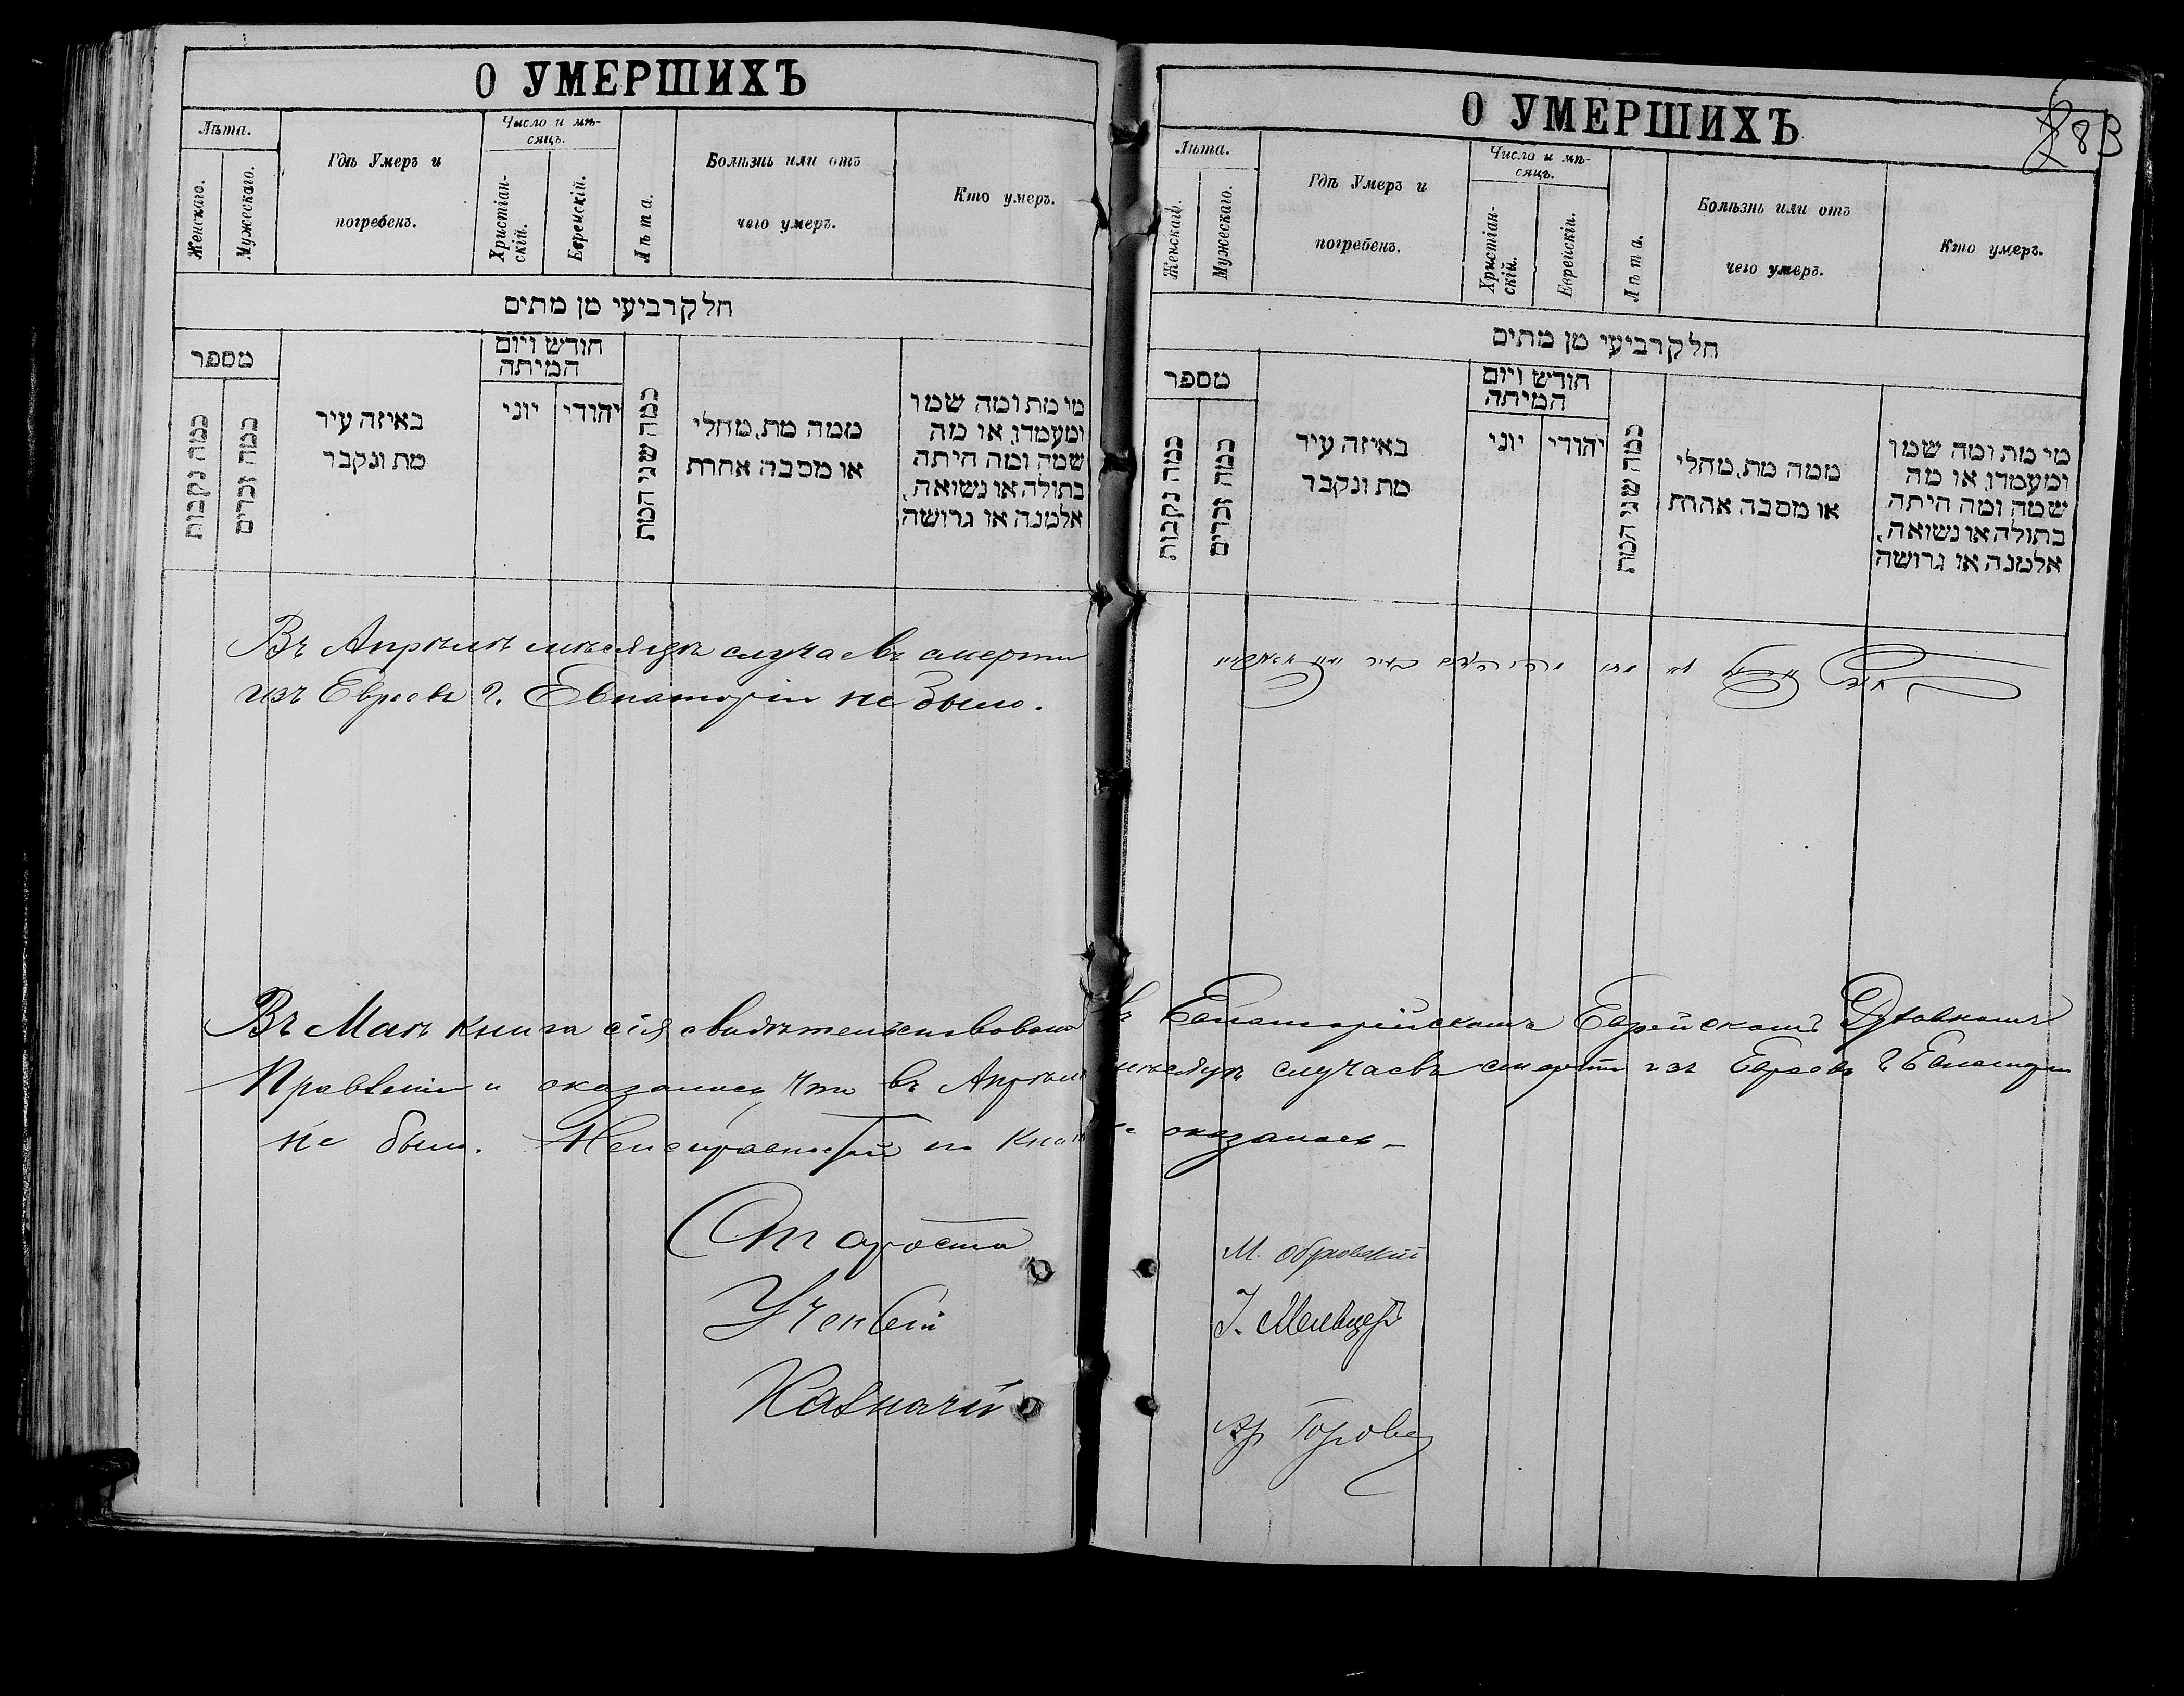 О УМЕРШИХЪ
Лѣта.
Женскаго.
Мужескаго.
Гдѣ Умеръ и
погребенъ.
Число и мѣ-
сяцъ.
Христіан-
скій.
Еврейскій.
Лѣта.
Болѣзнь или отъ
чего умеръ.
Кто умеръ.
חלק רביעי מן מתים
מספר
כמה נקבות
כמה זכרים
באיזה עיר
מת ונקבר
חודש ויום
המיתה
יוני
יהודי
כמה שני המת
ממה מת, מחלי
או מסבה אחרת
מי מת ומה שמו
ומעמדו, או מה
שמה ומה היתה
בתולה או נשואה,
אלמנה או גרושה
Въ Апрѣлѣ мѣсяцѣ случаевъ смерти
изъ Евреевъ г. Евпаторіи не было.
О УМЕРШИХЪ
Лѣта.
Женскаго.
Мужескаго.
Гдѣ Умеръ и
погребенъ.
Число и мѣ-
сяцъ.
Христіан-
скій.
Еврейскій.
Лѣта.
Болѣзнь или отъ
чего умеръ.
Кто умеръ.
חלק רביעי מן מתים
מספר
כמה נקבות
כמה זכרים
באיזה עיר
מת ונקבר
חודש ויום
המיתה
יוני
יהודי
כמה שני המת
ממה מת, מחלי
או מסבה אחרת
מי מת ומה שמו
ומעמדו, או מה
שמה ומה היתה
בתולה או נשואה,
אלמנה או גרושה
Въ Маѣ книга сія свидѣтельствована въ Евпаторійскомъ Еврейскомъ Духовномъ
Правленіи и оказалось что въ Апрѣлѣ мѣсяцѣ случаевъ смерти изъ Евреевъ г Евпаторіи
не было. Неисправностей по книгѣ не оказалось –
Староста
Ученый
Казначей